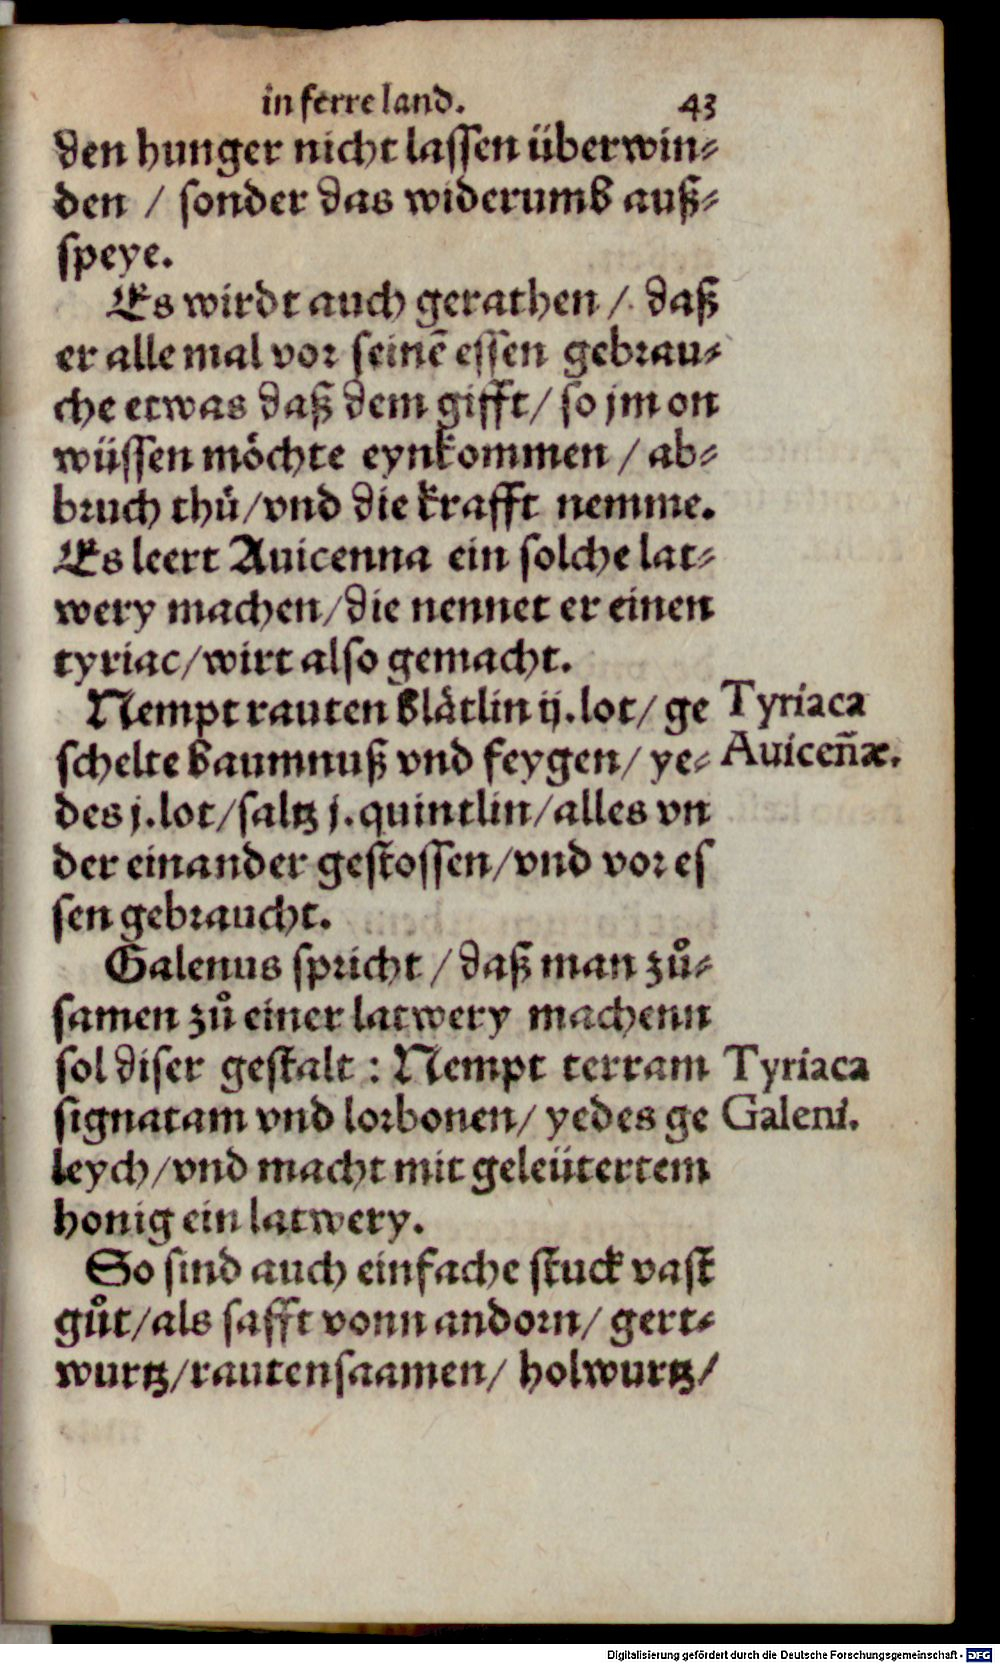 in ferre land. 43
den hunger nicht lassen überwin⸗
den / sonder das widerumb auß⸗
speye.
Es wirdt auch gerathen / daß
er alle mal vor seinē essen gebrau⸗
che etwas daß dem gifft / so jm on
wüssen möchte eynkommen / ab⸗
bruch thů / vnd die krafft nemme.
Es leert Auicenna ein solche lat⸗
wery machen / die nennet er einen
tyriac / wirt also gemacht.
Nempt rauten blåtlin ij. lot / ge
Tyriaca
schelte baumnuß vnd feygen / ye⸗
Auiceñæ.
des j. lot / saltz j. quintlin / alles vn
der einander gestossen / vnd vor es
sen gebraucht.
Galenus spricht / daß man zů⸗
samen zů einer latwery machenn
sol diser gestalt : Nempt terram
Tyriaca
signatam vnd lorbonen / yedes ge
Galeni.
leych / vnd macht mit geleütertem
honig ein latwery.
So sind auch einfache stuck vast
gůt / als safft vonn andorn / gert⸗
wurtz / rautensaamen / holwurtz /
Digitalisierung gefördert durch die Deutsche Forschungsgemeinschaft - DFG